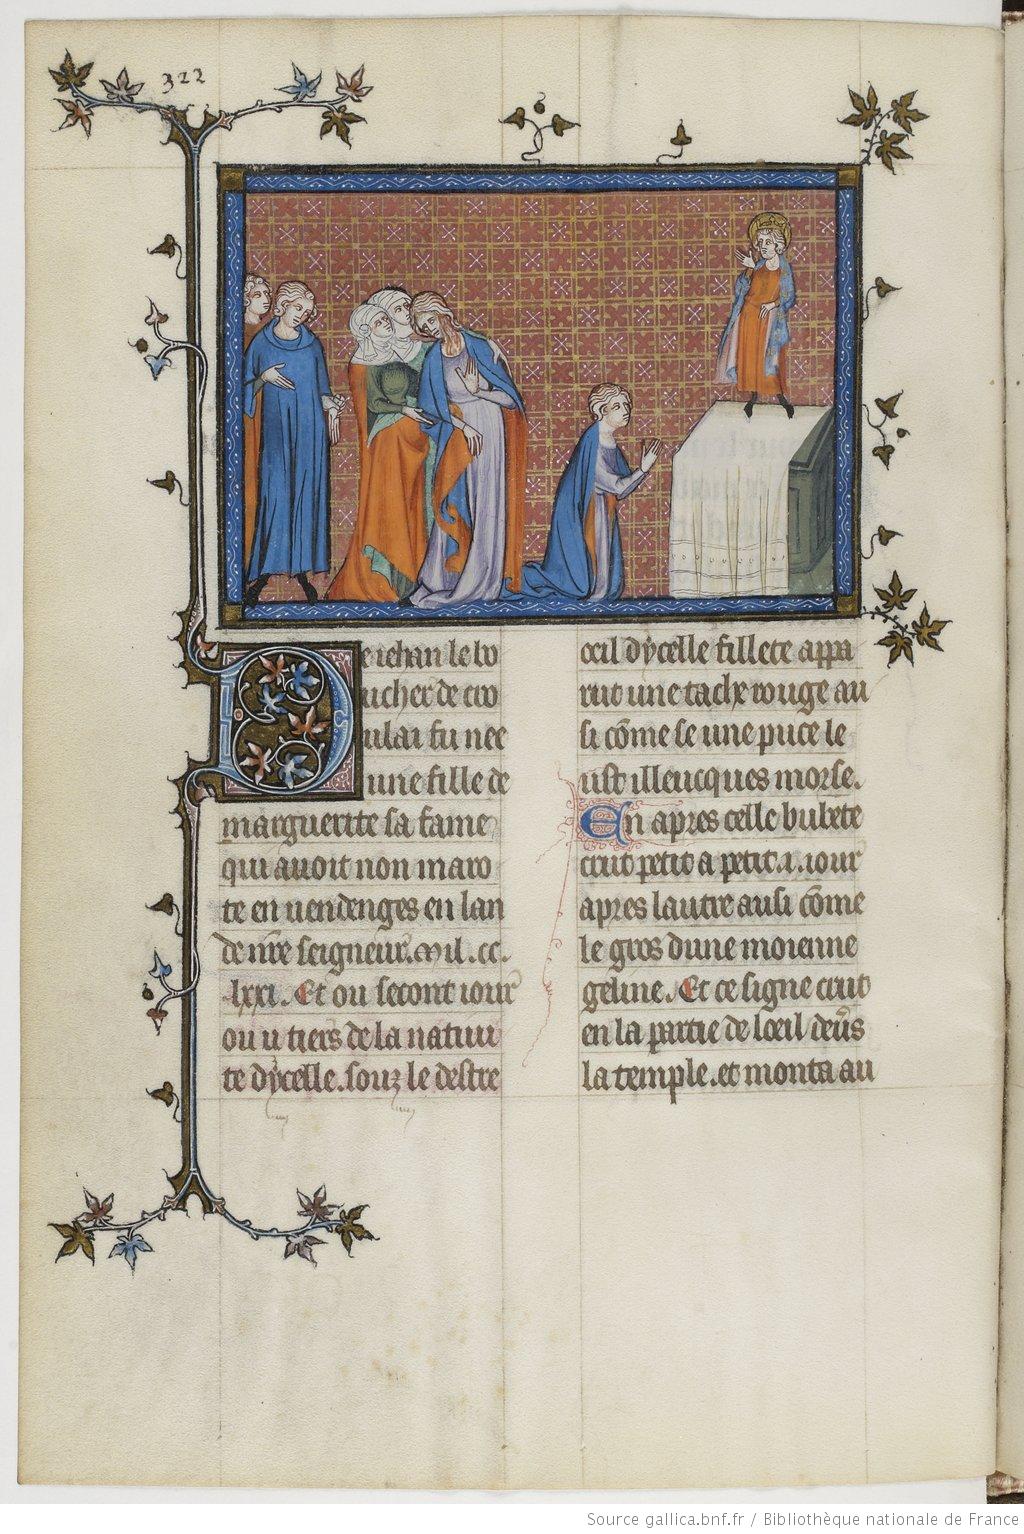 322
De iehan le bo
ucher de cro
ulai fu nee
une fille de
marguerite sa fame
qui auoit non maro
te en uendenges en lan
de nr̄e seigneur. mil. cc.
lxxi. Et ou secont iour
ou u tiers de la natiui
te dycelle. souz le destre
oeil dycelle fillete appa
rut une tache rouge au
si cōme se une puce le
ust illeucques morse.
En apres celle bubete
crut petit a petit .i. iour
apres lautre ausi cōme
le gros dune moienne
geline. Et ce signe crut
en la partie de loeil deu's
la temple. et monta au
Source gallica.bnf.fr / Bibliothèque nationale de France